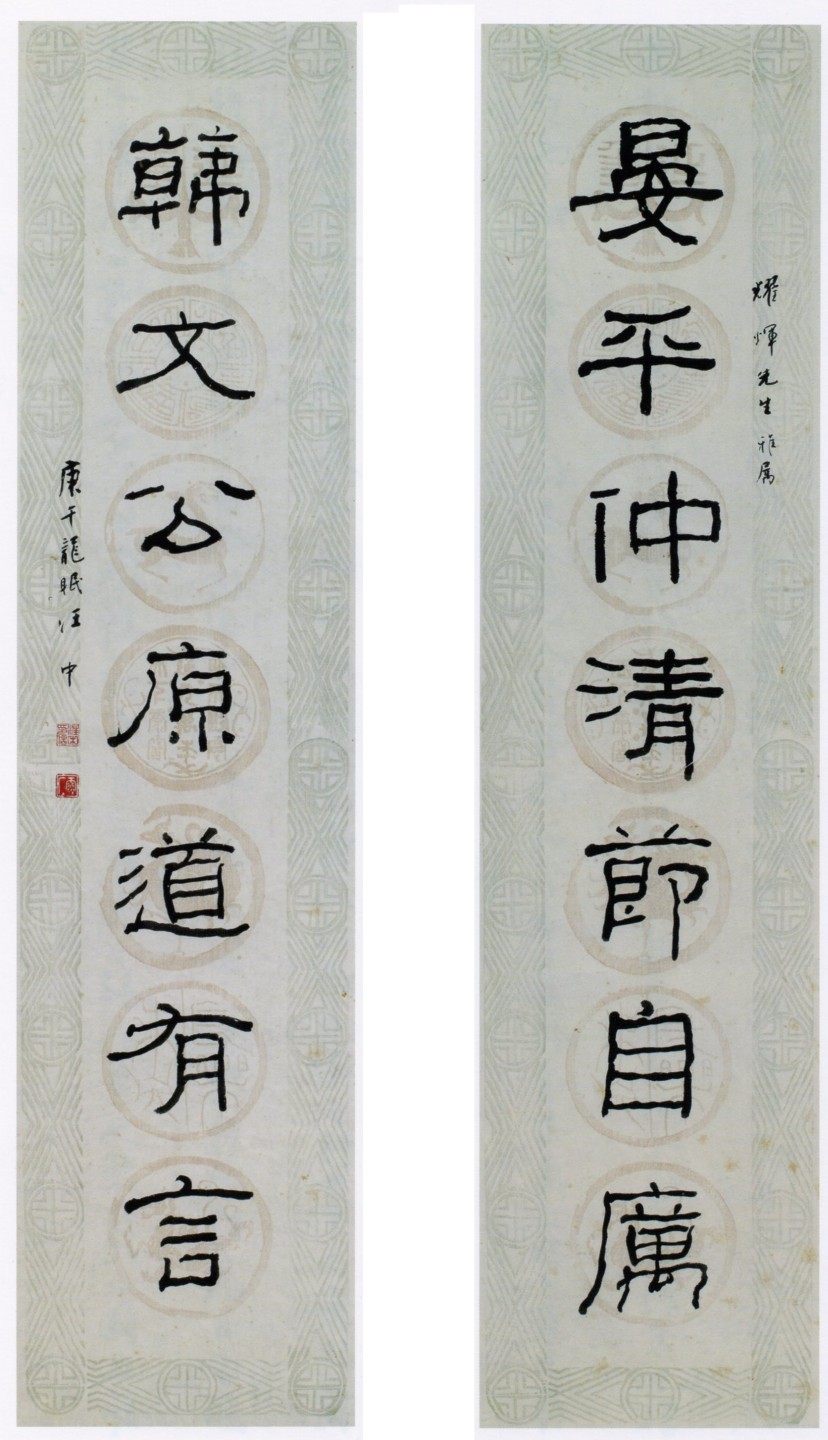 耀煇先生雅属
晏平仲清節自厲
韓文公原道有言
庚午龍眠汪中